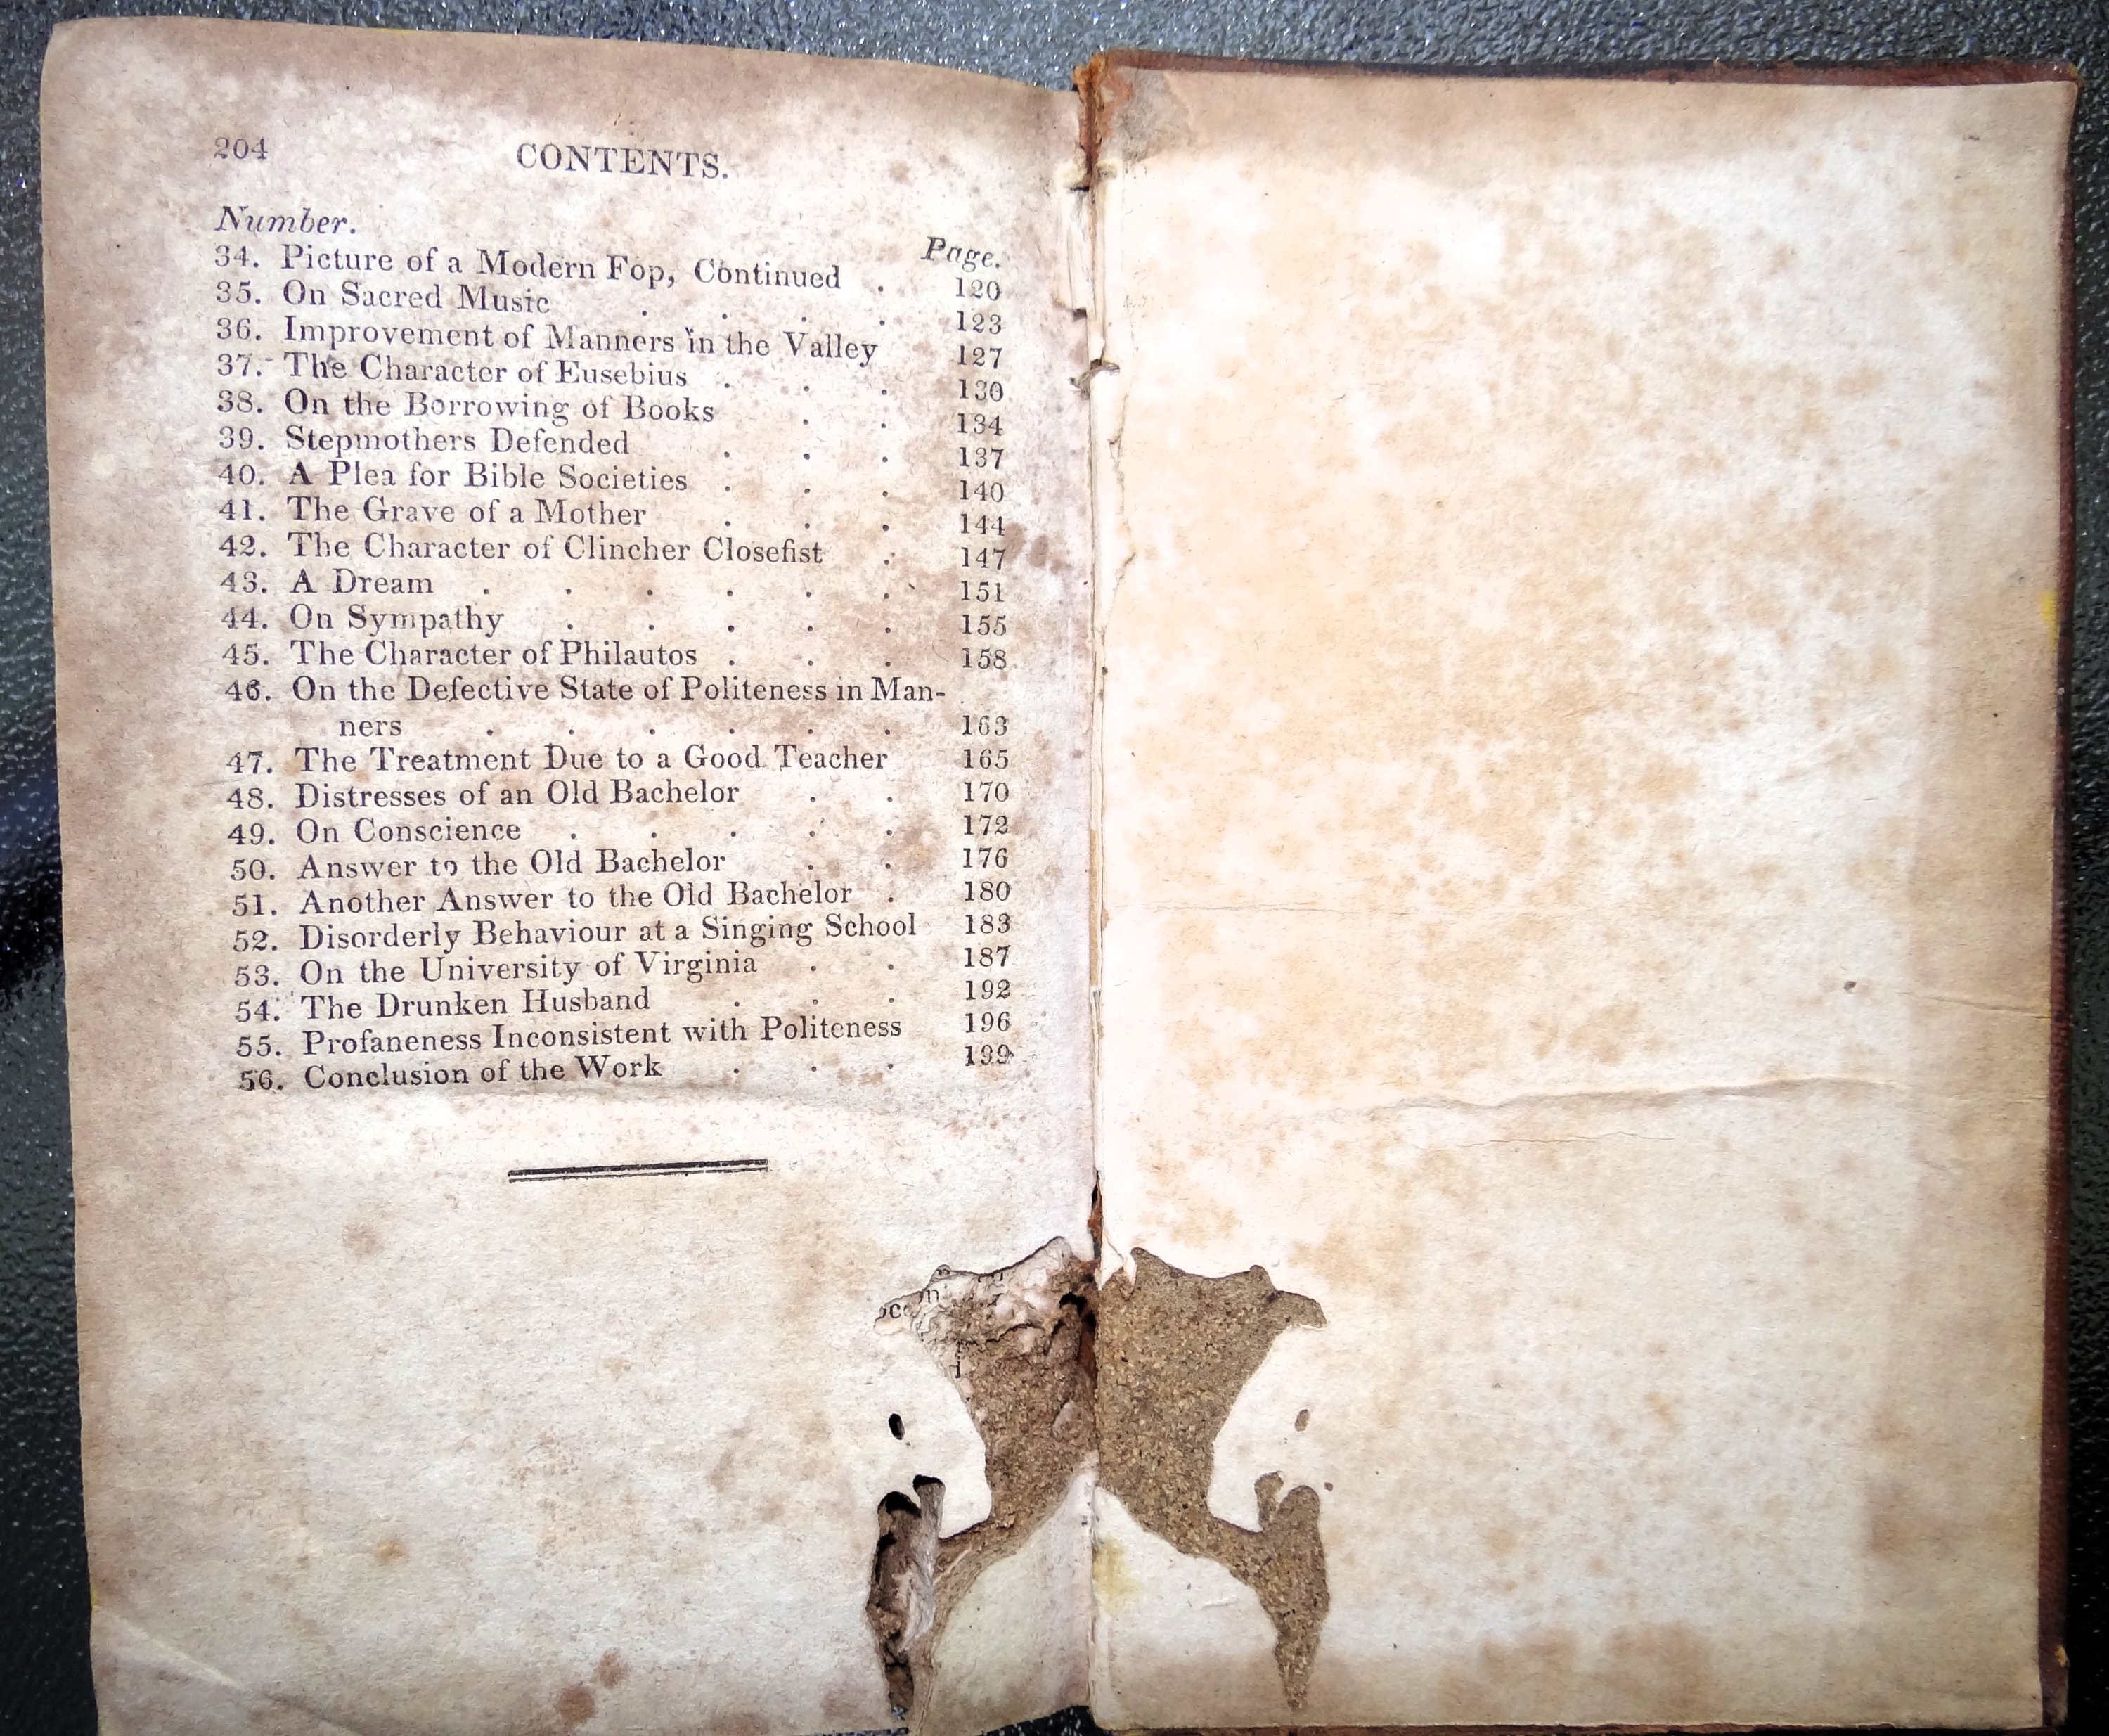 204 CONTENTS.
Number. Page.
34. Picture of a Modern Fop, Continued . 120
35. On Sacred Music . . . . 123
36. Improvement of Manners in the Valley 127
37. The Character of Eusebius . . . 130
38. On the Borrowing of Books . . 134
39. Stepmothers Defended . . . 137
40. A Plea for Bible Societies . . . 140
41. The Grave of a Mother . . . 144
42. The Character of Clincher Closefist . 147
43. A Dream . . . . . . 151
44. On Sympathy . . . . . 155
45. The Character of Philautos . . . 158
46. On the Defective State of Politeness in Man-
ners . . . . . . 163
47. The Treatment Due to a Good Teacher 165
48. Distresses of an Old Bachelor . . 170
49. On Conscience . . . . . 172
50. Answer to the Old Bachelor . . 176
51. Another Answer to the Old Bachelor . 180
52. Disorderly Behaviour at a Singing School 183
53. On the University of Virginia . . 187
54. The Drunken Husband . . . 192
55. Profaneness Inconsistent with Politeness 196
56. Conclusion of the Work . . . 199